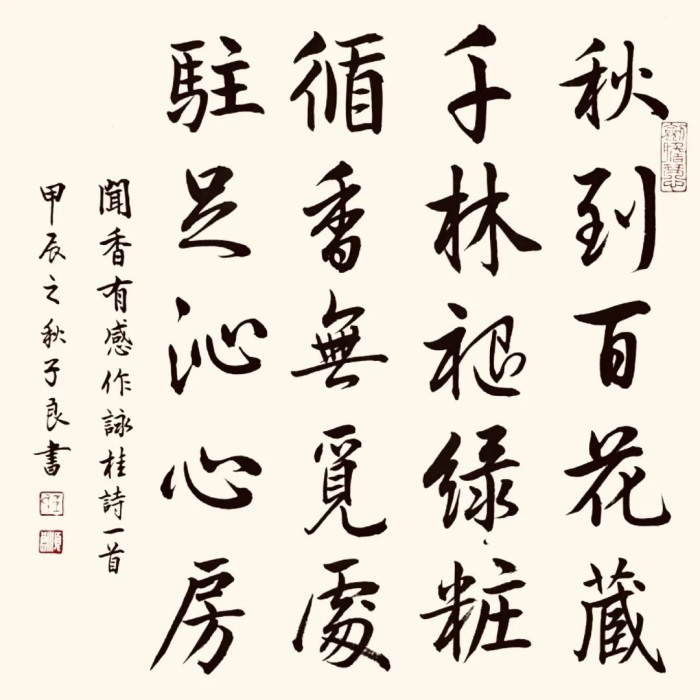 秋到百花蔵
千林褪緑粧
循香無覓處
駐足沁心房
聞香有感作詠桂詩一首
甲辰之秋子良書